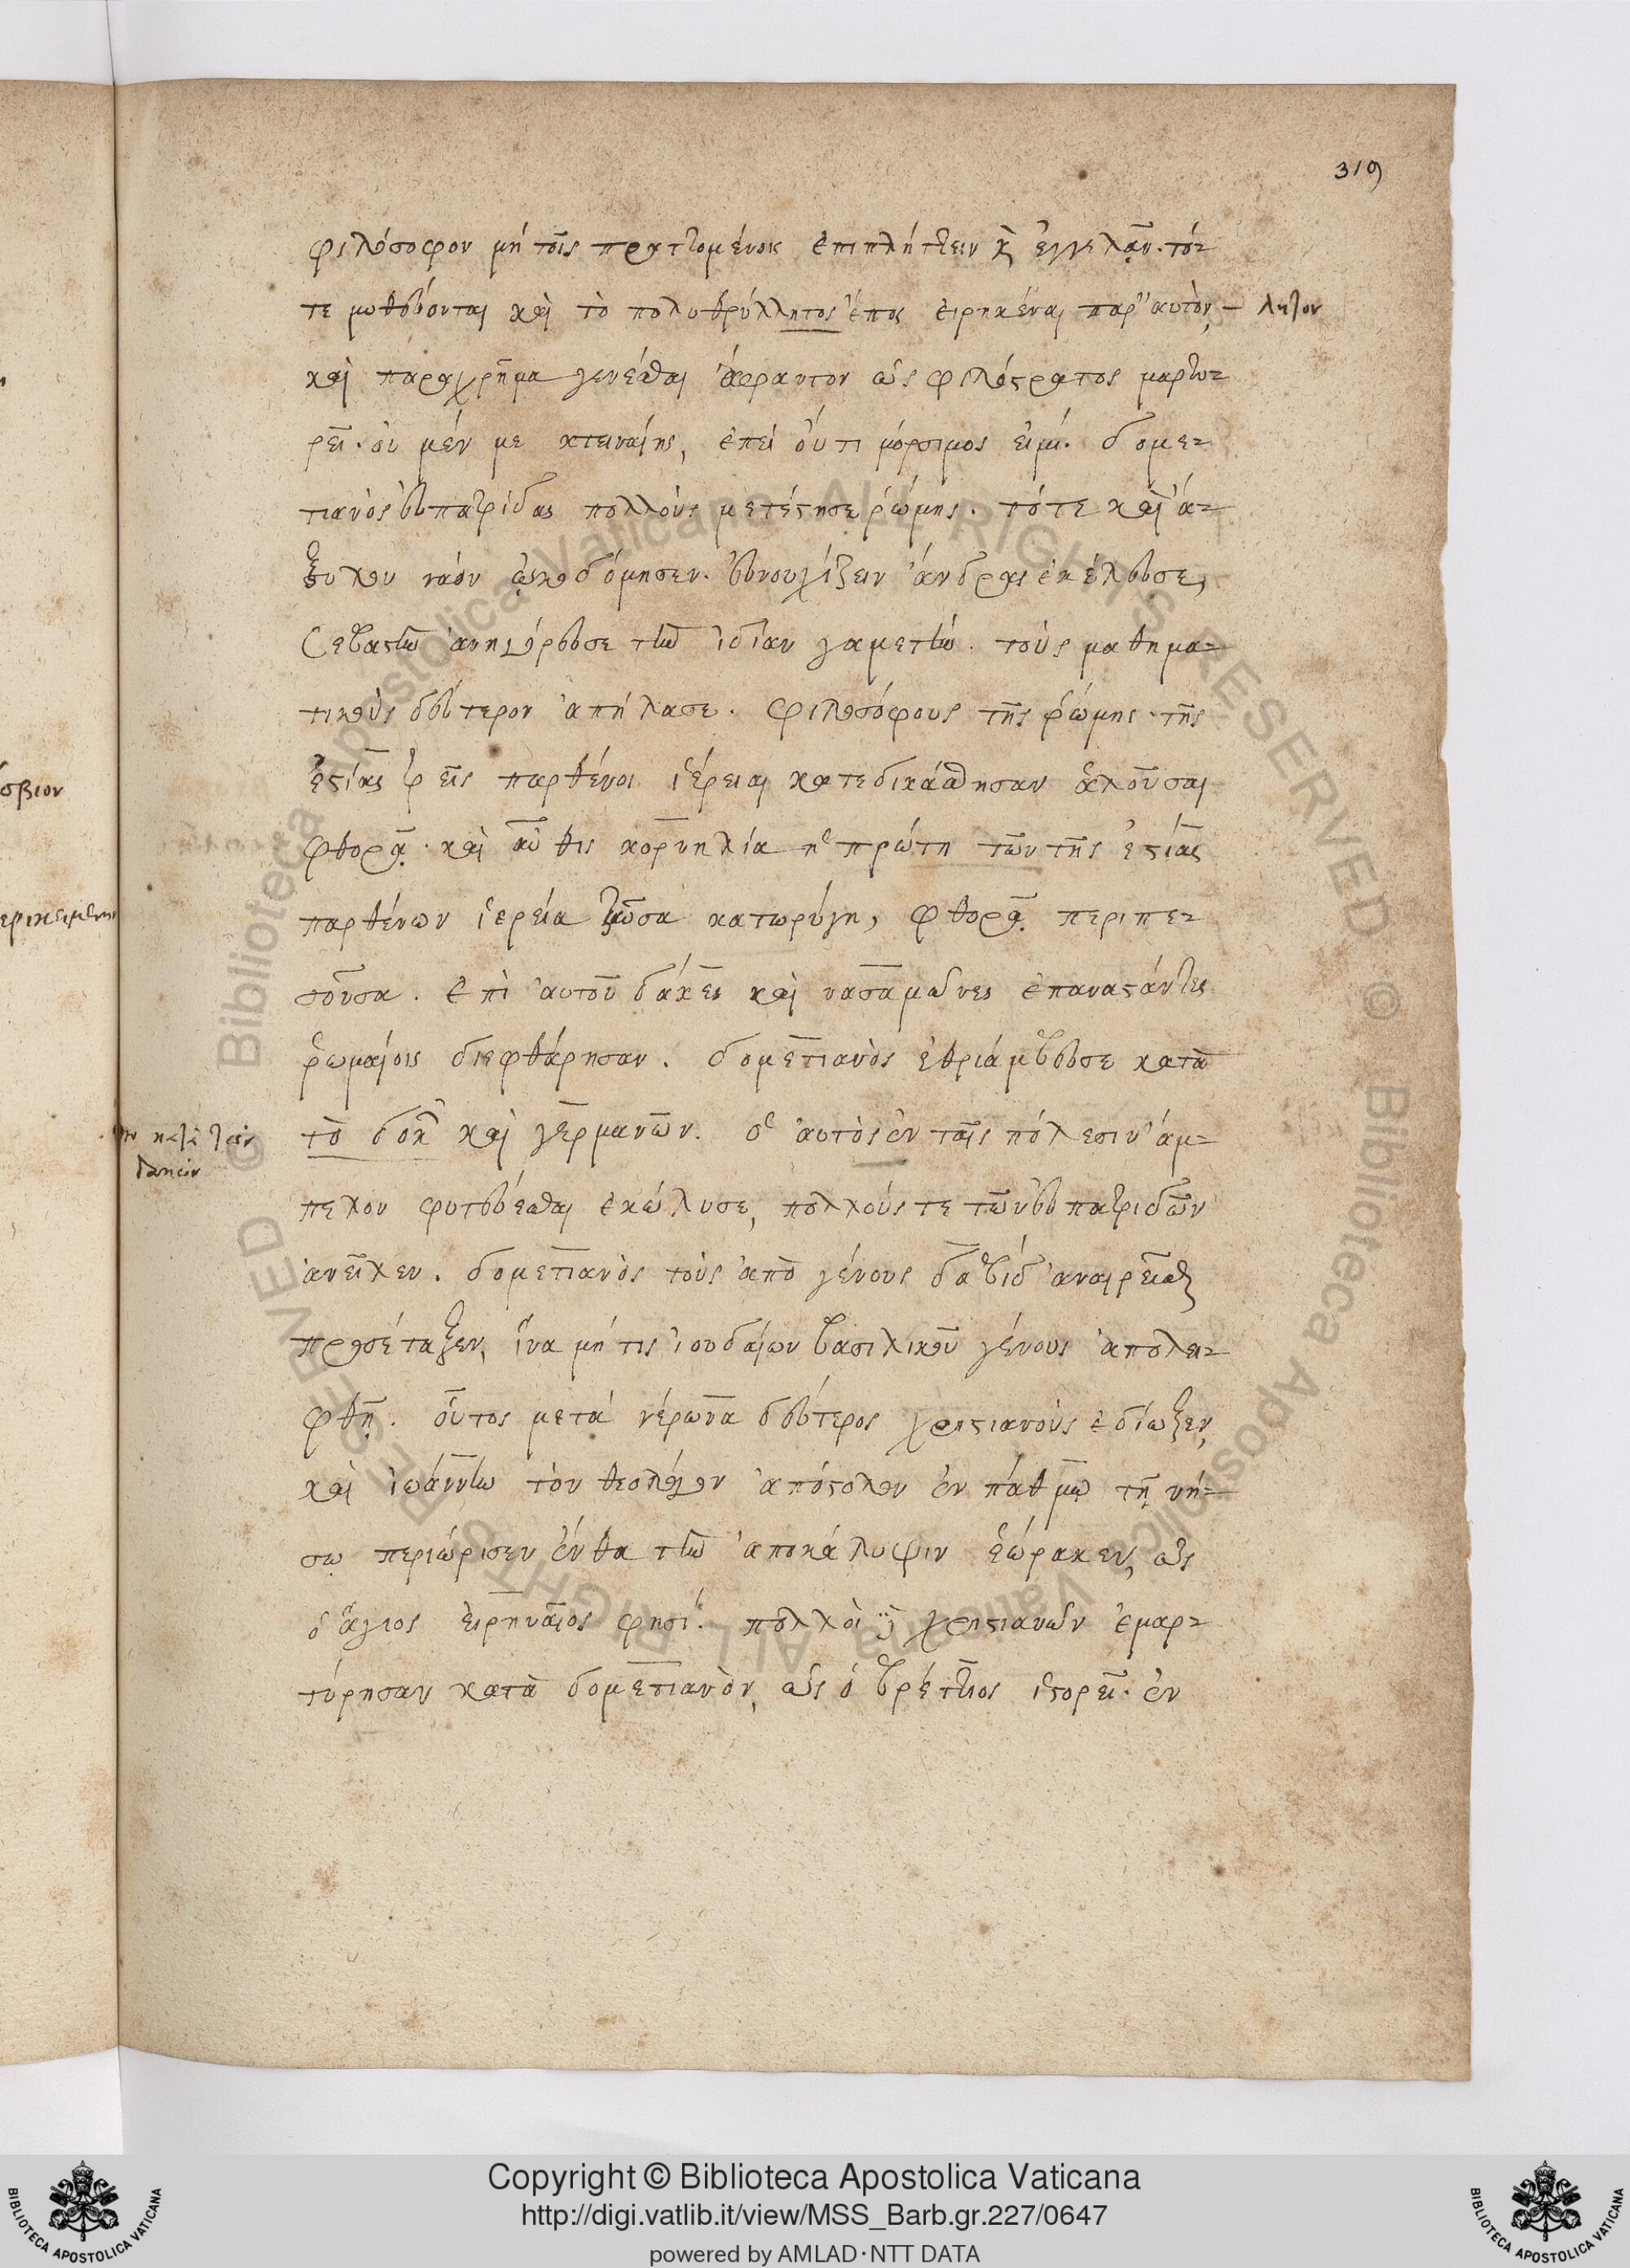 319
φιλόσοφον μή τοῖς πραττομένοις ἐπιπλήττειν κ̀ ἐγγελᾷν. τό-
τε μυθεύονται καὶ τὸ πολυθρύλλητος ἔπος εἰρηκέναι παρ' αυτὸν, — λητον
καὶ παραχρῆμα γενέσθαι ἄφραντον ὡς φιλόστρατος μαρτυ-
ρεῖ. ου μέν με κτειναίης, ἐπεί οὔτι μόρσιμος εἰμί. δομε-
τιανὸς ἐυπατρίδας πολλοὺς μετέστησε ῥώμης. τότε καὶ ἀ-
ξυλον ναόν ᾠκοδόμησεν. ἐυνουχίζειν ἄνδρας ἐκέλευσε,
Σεβαστὴν ἀνηγόρευσε τὴν ἰδίαν γαμετήν. τοὺς μαθημα-
τικοὺς δεύτερον ἀπήλασε. φιλοσόφους τῆς ῥώμης. τῆς
ἑστίας τρεῖς παρθένοι ἱέρειαι κατεδικάσθησαν ἁλοῦσαι
φθορᾷ. καὶ αὖθις κορνηλία ἡ πρώτη τῶν τῆς ἑστίας
παρθένων ἱερεία ζῶσα κατωρύγη, φθορᾷ περιπε-
σοῦσα. ἐπὶ αυτοῦ δάκες καὶ νασαμῶνες ἐπαναστάντες
ῥωμαίοις διεφθάρησαν. δομετιανὸς ἐθριάμβευσε κατὰ
τὸ δοκ καὶ γερμανῶν. ὁ αυτὸς ἐν ταῖς πόλεσιν ἄμ-
πελον φυτεύεσθαι ἐκώλυσε, πολλούς τε τῶν ἐυπατριδῶν
ἀνεῖλεν. δομετιανὸς τοὺς ἀπὸ γένους δαβίδ ἀναιρεῖσθαι
προσέταξεν, ἵνα μή τις ἰουδαίων βασιλικοῦ γένους ἀπολει-
φθῇ. οὗτος μετά νέρωνα δεύτερος χριστιανοὺς ἐδίωξεν,
καὶ ἰωάννην τὸν θεολόγον ἀπόστολον ἐν πάθμῳ τῇ νή-
σῳ περιώρισεν ἔνθα τὴν ἀποκάλυψιν ἑώρακεν, ὡς
ὁ ἅγιος ἐιρηναῖος φησί. πολλοὶ δὲ χριστιανῶν ἐμαρ-
τύρησαν κατὰ δομετιανὸν, ὡς ὁ βρέττιος ἱστορεῖ. ἐν
Copyright © Biblioteca Apostolica Vaticana
http://digi.vatlib.it/view/MSS_Barb.gr.227/0647
powered by AMLAD·NTT DATA
BIBLIOTECA APOSTOLICA VATICANA
BIBLIOTECA APOSTOLICA VATICANA
Biblioteca Apostolica Vaticana ALL RIGHTS RESERVED ©
Biblioteca Apostolica Vaticana ALL RIGHTS RESERVED ©